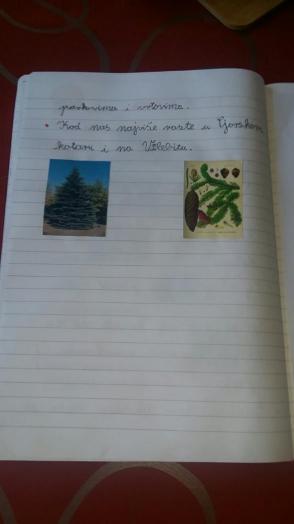 parkovima i vrtovima.
• Kod nas najviše raste u Gorskom
kotaru i na Velebitu.